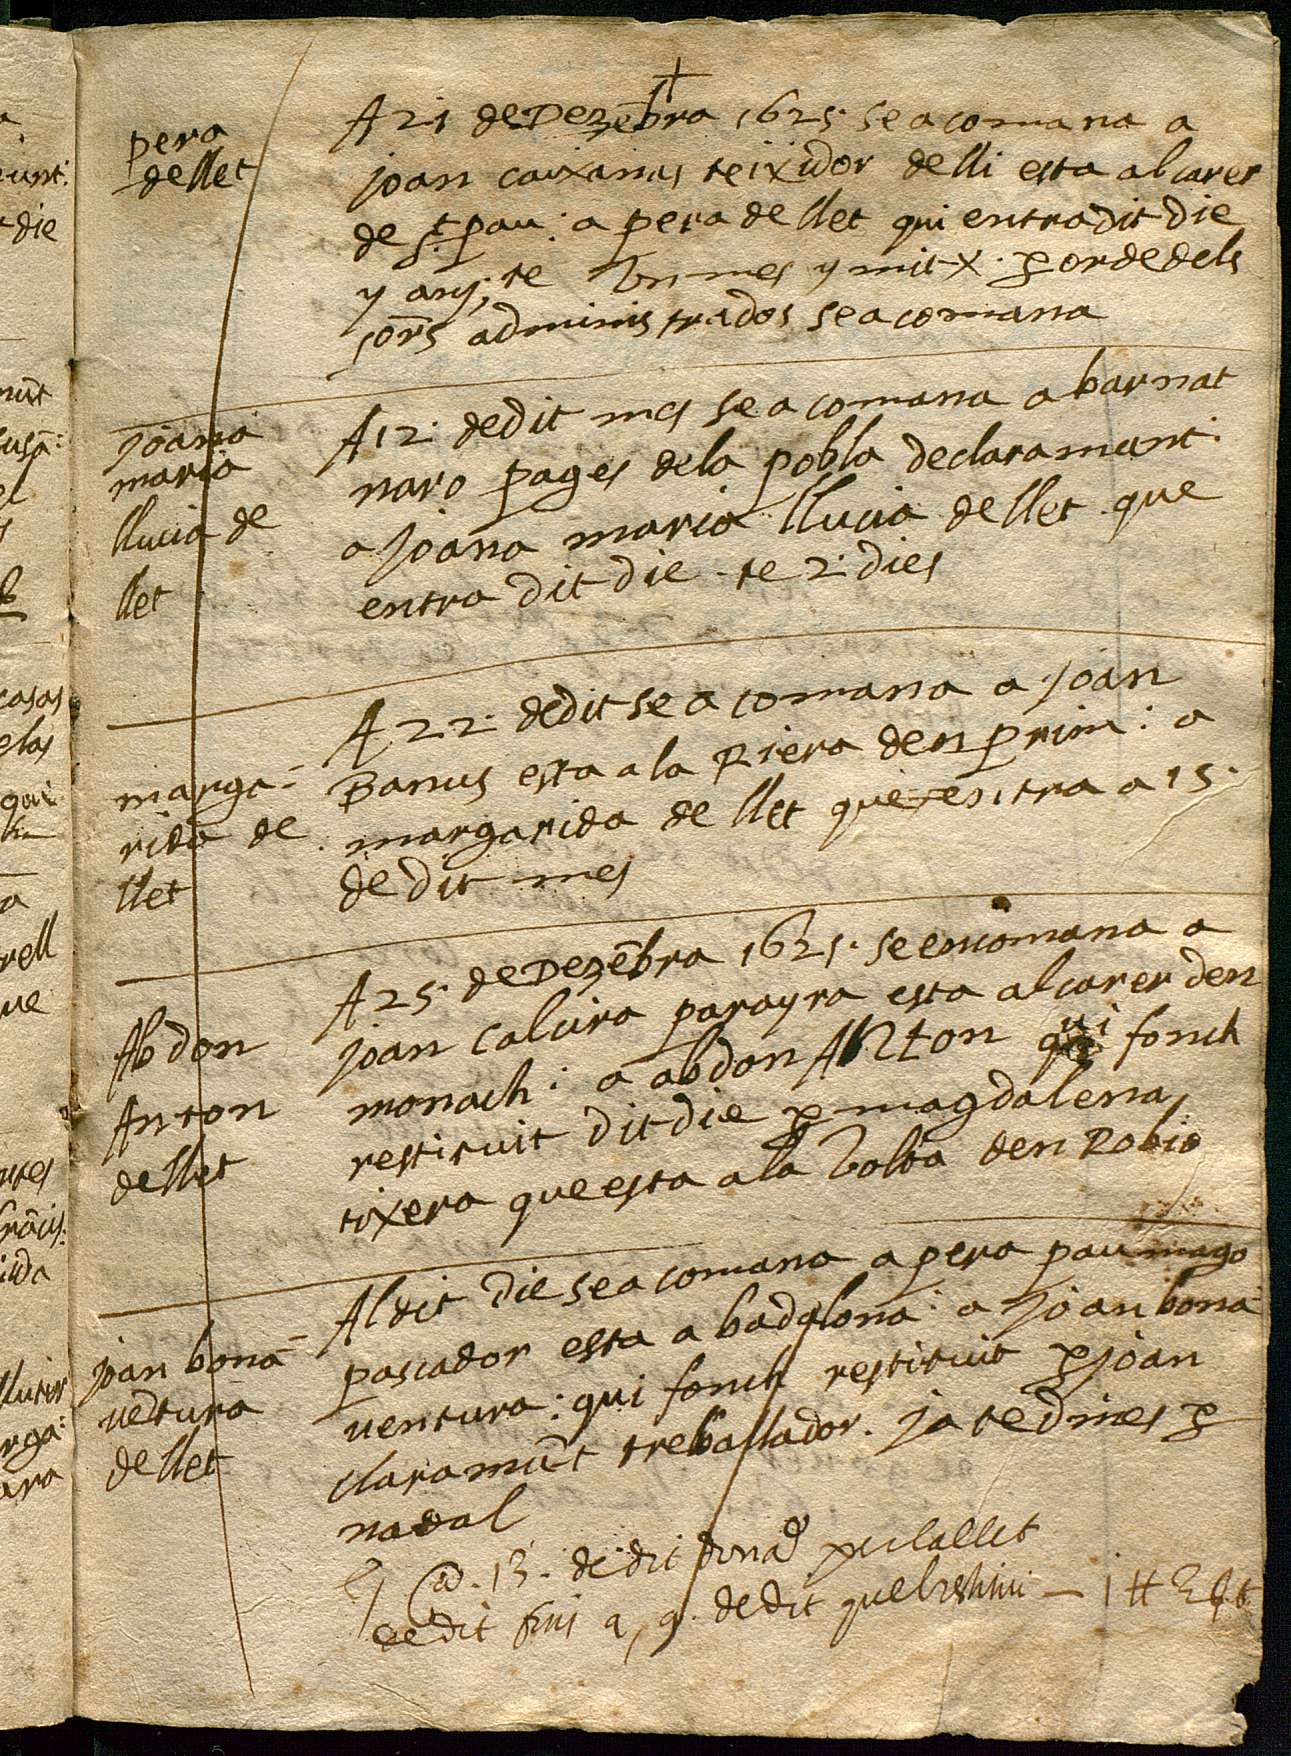 +
pera
de llet
A 21 de Dezēbra 1625. se acomana a
joan caixanas teixidor de lli esta al carer
de St. pau: a pera de llet qui entra dit die
y any; te Un mes y mitx. p orde dels
sors administrados se acomana
joana
maria
llucia de
llet
A 12. de dit mes se acomana a barnat
naro pages de la pobla de claramunt.
a joana maria llucia de llet que
entra dit die te 2. dies
marga-
rida de
llet
A 22. de dit se acomana a joan
Banus esta a la Riera den prim: a
margarida de llet que entra a 15.
de dit mes
Abdon
Anton
de llet
A 25. de Dezēbra 1625. se encomana a
joan calvira parayra esta al carer den
monach: a abdon Anton qui fonch
restituit dit die p magdalena
tixera que esta a la Volta den Robio
joan bona-
uētura
de llet
Al dit Die se acomana a pera pau mago
pascador esta a badalona: a joan bona-
uentura: qui fonch restituit p joan
claramūt treballador. ja te dines p
nadal
13. de dit donad per la llet
de dit fins a 9. de dit que